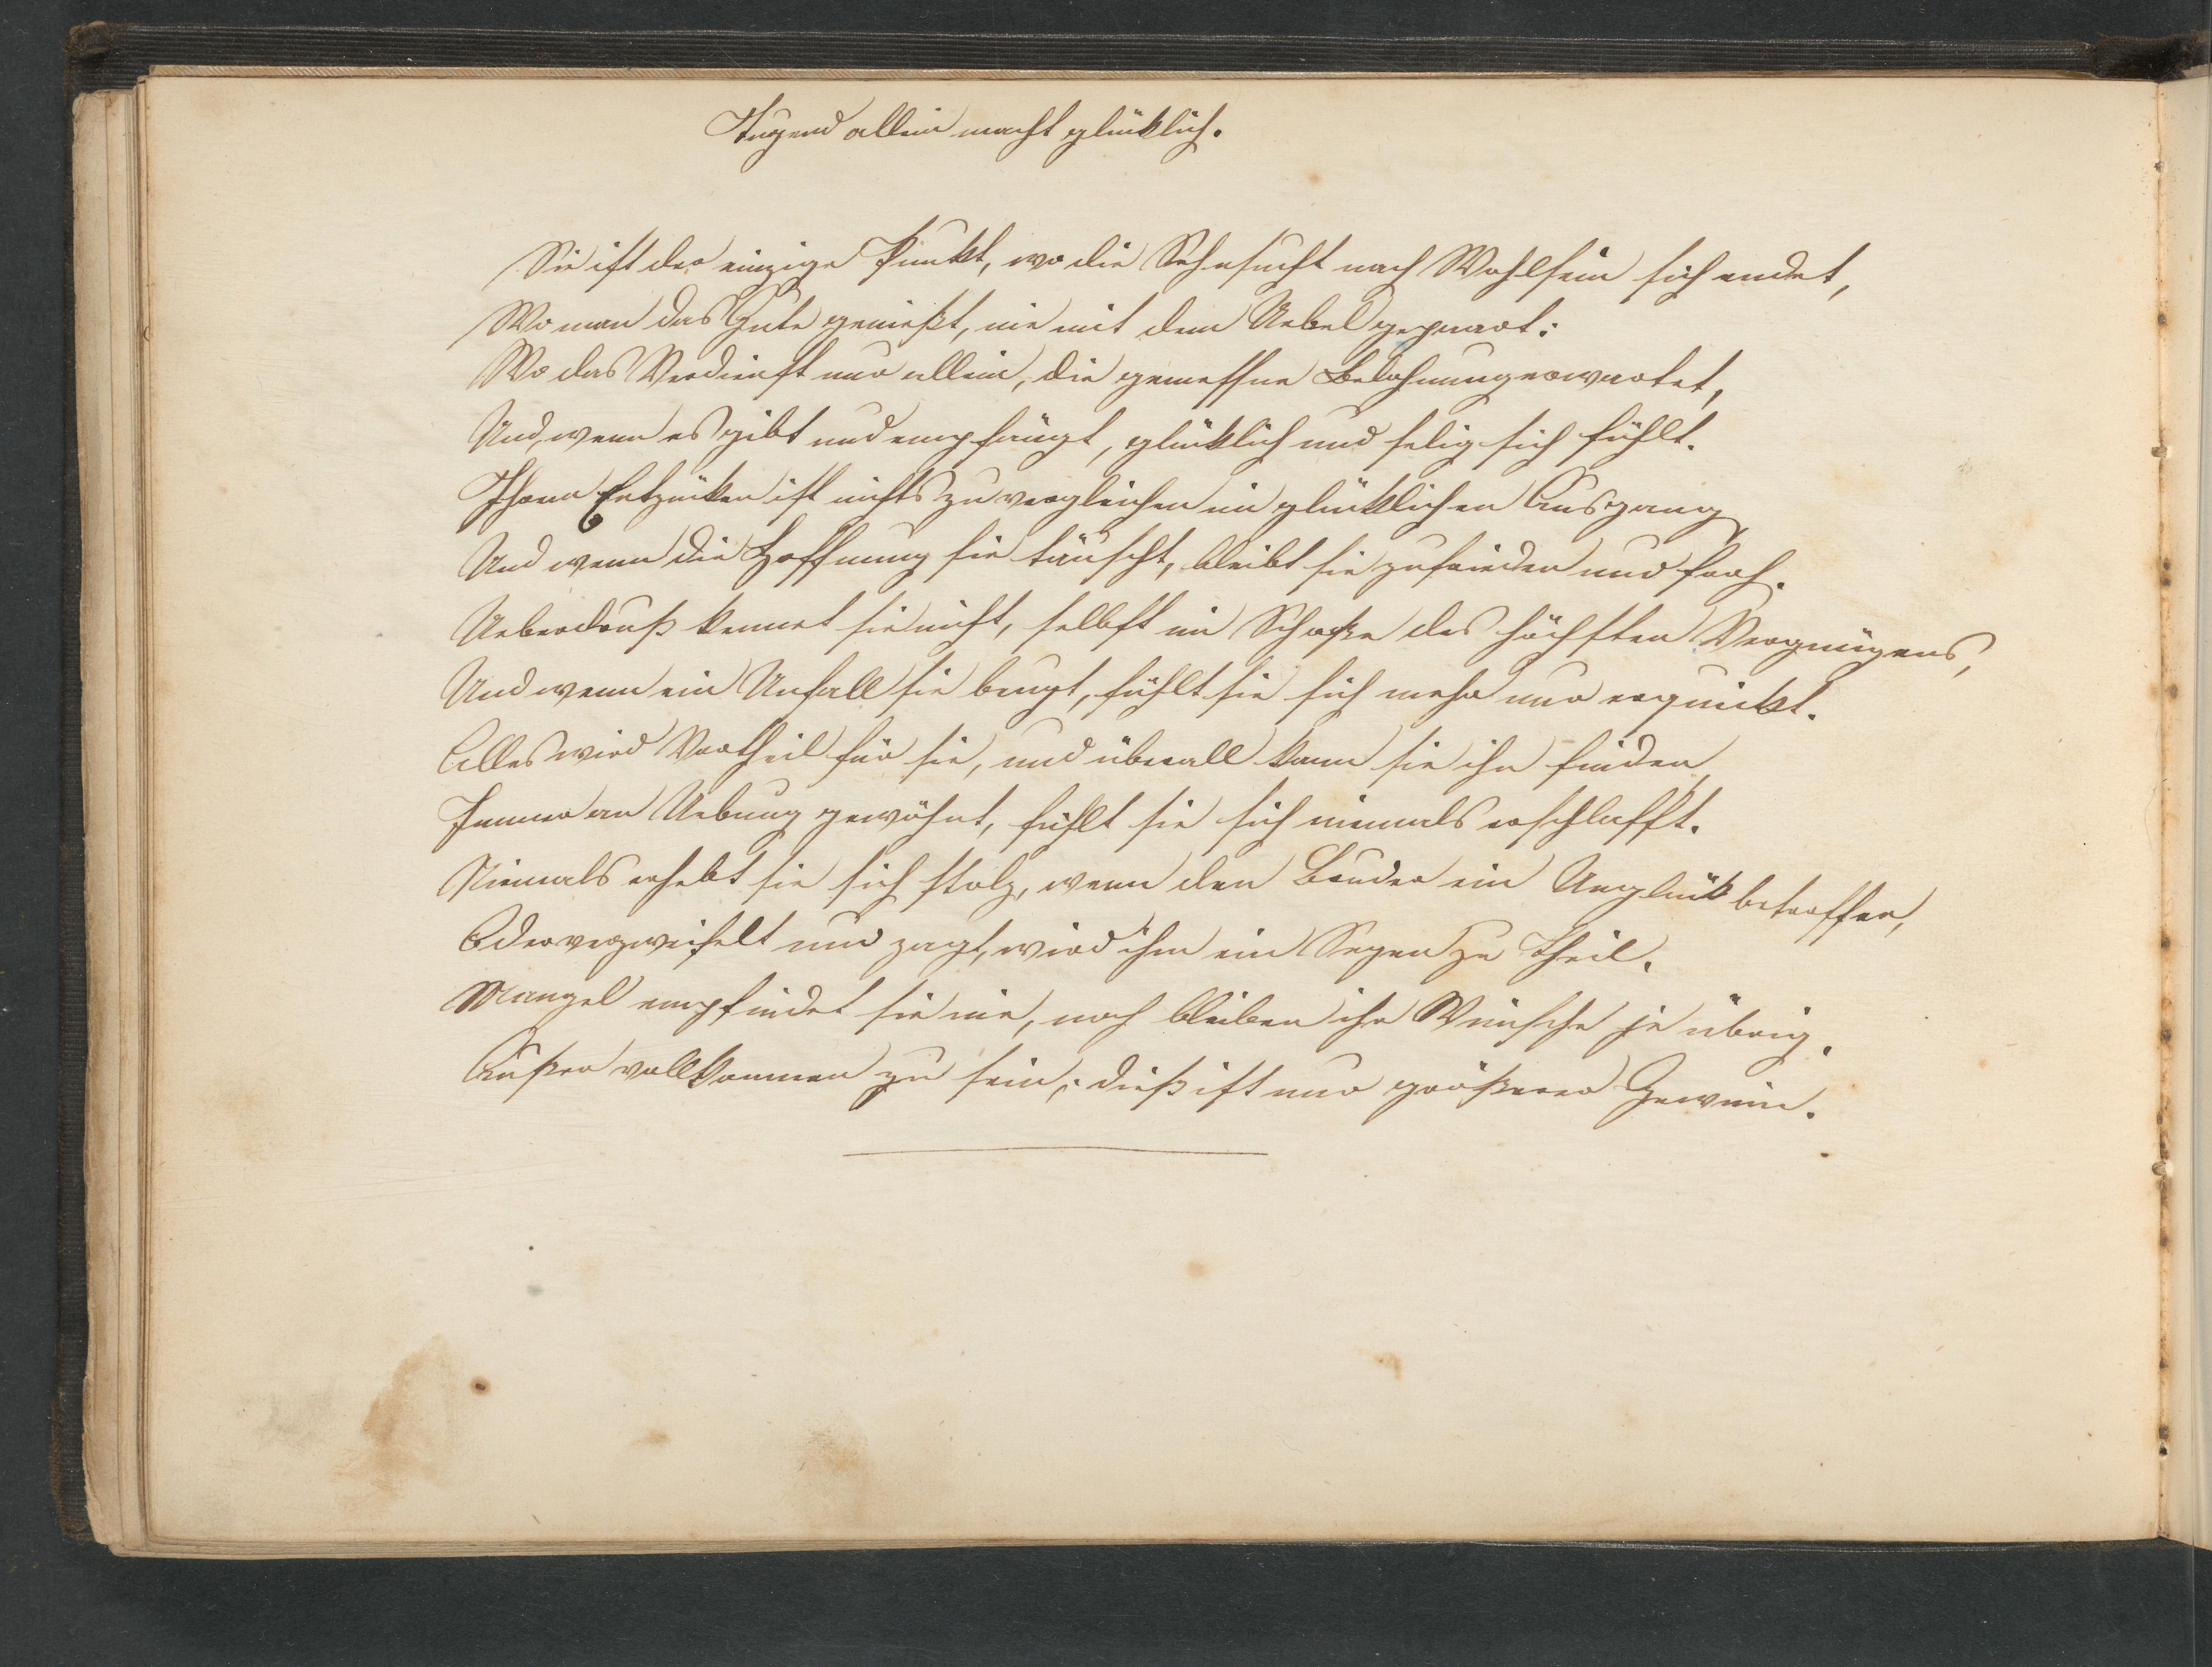 Tugend allein macht glüklich.
Sie ist der einzige Punkt, wo die Sehnsucht nach Wohlsein sich endet,
Wo man das Gute genießt, nie mit dem Uebel gepaart:
Wo das Verdienst nur allein, die gemessne Belohnung erwartet,
Und, wenn es gibt und empfängt, glüklich und selig sich fühlt.
Ihrem Entzüken ist nichts zu vergleichen im glüklichen Ausgang,
Und wenn die Hoffnung sie täuscht, bleibt sie zufrieden und froh.
Ueberdruß kennet sie nicht, selbst im Schoße des höchsten Vergnügens,
Und wenn ein Unfall sie beugt, fühlt sie sich mehr nur erquikt.
Alles wird Vortheil für sie, und überall kann sie ihn finden,
Immer an Uebung gewöhnt, fühlt sie sich niemals erschlafft.
Niemals erhebt sie sich stolz, wenn den Bruder ein Unglük betroffen,
Oder verzweifelt und zagt, wird ihm ein Segen zu Theil.
Mangel empfindet sie nie, noch bleiben ihr Wünsche je übrig.
Außer vollkommen zu sein; dieß ist nur größerer Gewinn.